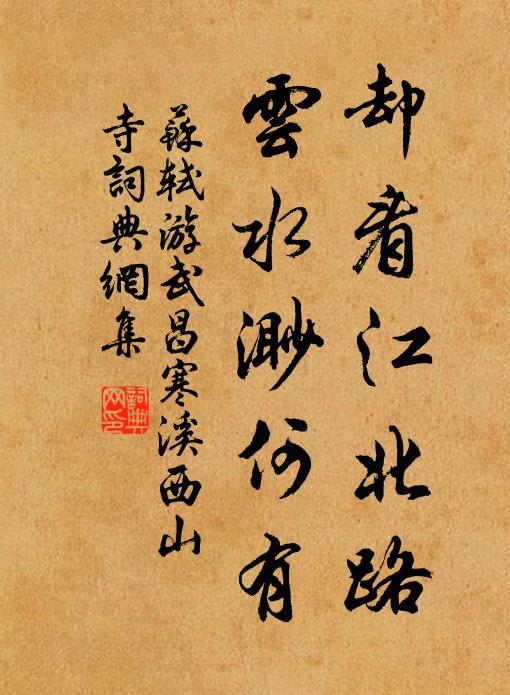 却看江北路
雲水渺何有
蘇軾游武昌寒溪西山
寺詞典網集
詞典
网印